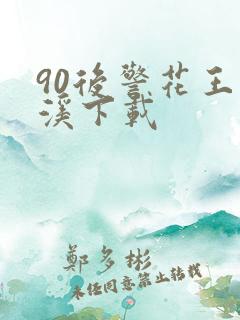 90後警花王
溪下載
鄭多彬
未經同意禁止轉載